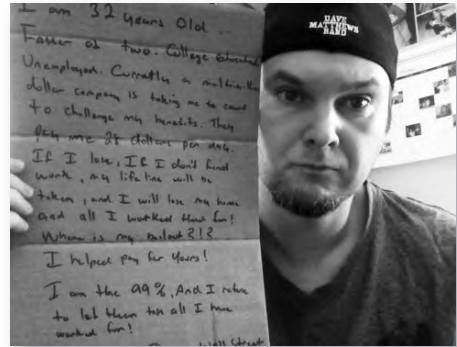 I am 32 years old.
Father of two. College educated
Unemployed. Currently a multimillion
dollar company is taking me to court
to challenge my benefits. They
pay me 28 dollars per day.
If I lose, If I don't find
work, my life line will be
taken, and I will lose my home
and all I worked for!
Where is my bailout?!?
I helped pay for yours!
I am the 99%, And I refuse
to let them take all I have
worked for!
Wall Street
DAVE
MATTHEWS
BAND